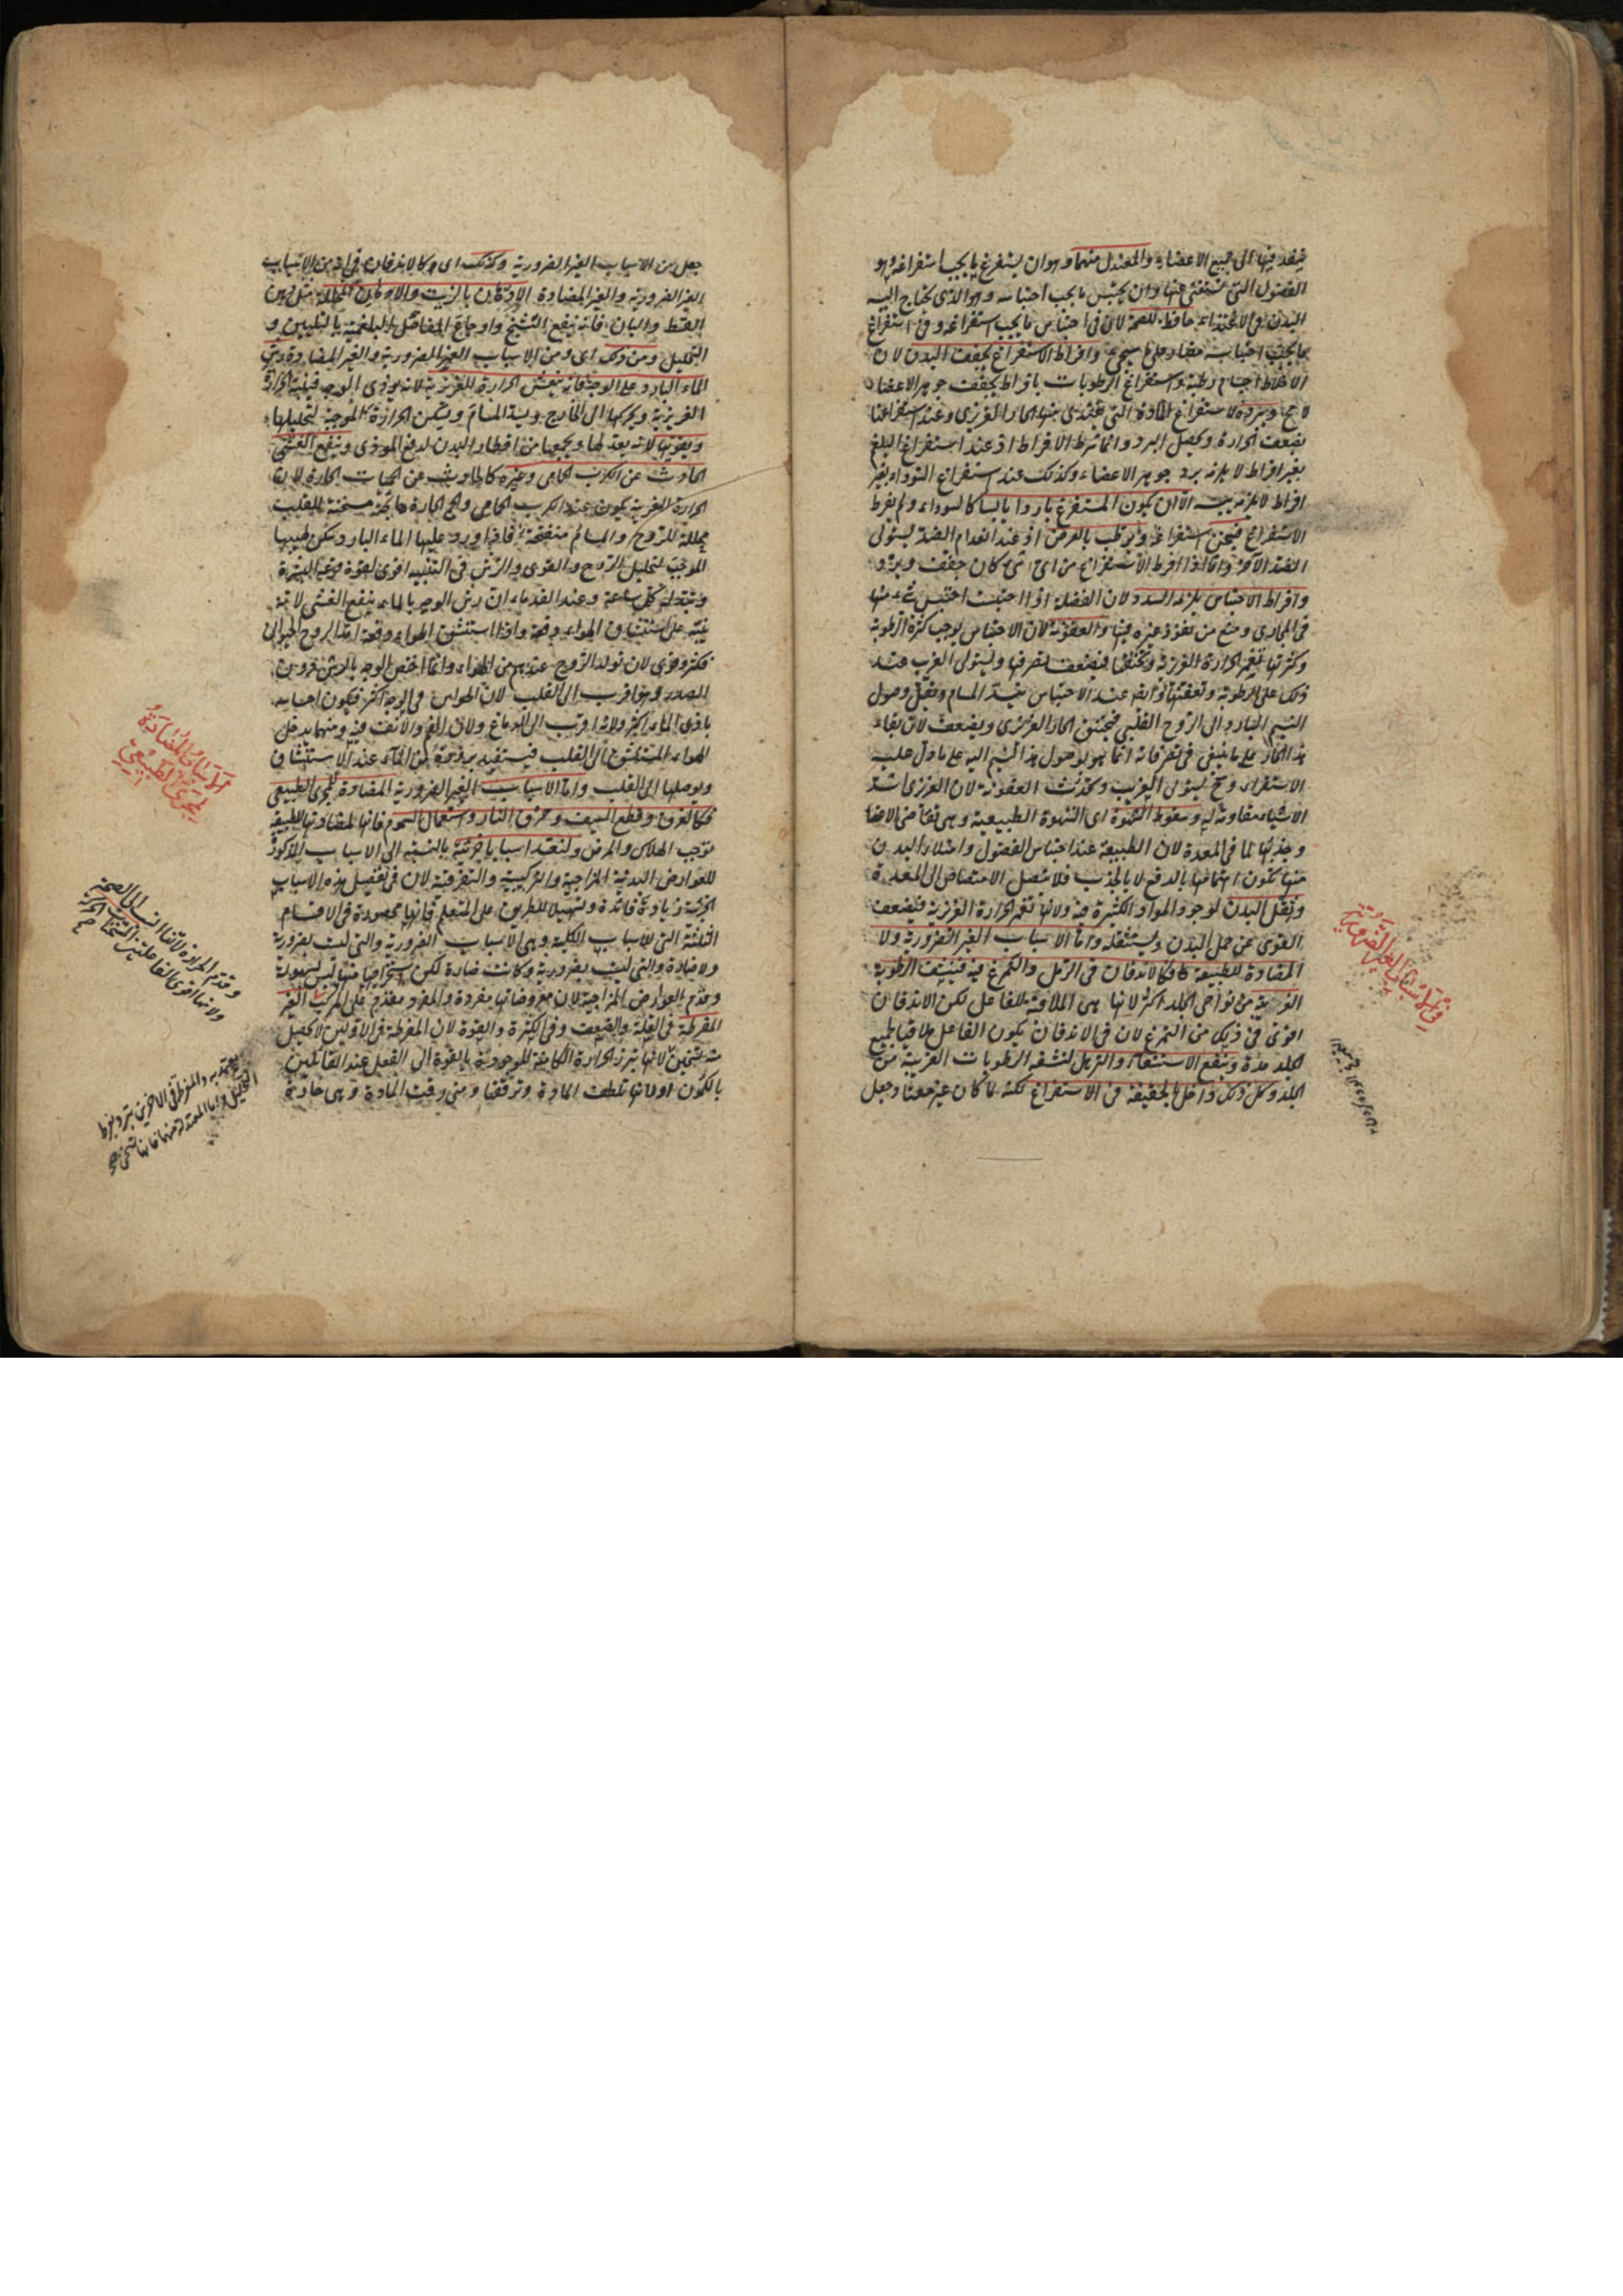 ينفذ فيها الى جميع الاعضاء والمعتدل منهما وهو ان يستفرغ ما يجب استفراغه وهو
الفضول التى يستغنى عنها وان يحتبس ما يجب احتباسه وهو الذى يحتاج اليه
البدن فى الاغتذاء حافظ للصحة لان فى احتباس ما يجب استفراغه وفى استفراغ
ما يجب احتباسه وافراط الاستفراغ يجفف البدن لان
الاخلاط اجسام رطبة واستفراغ الرطوبات بافراط يجفف جوهر الاعضاء
ويبرده لاستفراغ المادة التى يغتذى منها الحار الغريزى وعند استفراغها
يضعف الحرارة ويحصل البرد وانما شرط الافراط اذ عند استفراغ البلغم
بغير افراط لا يلزمه برد جوهر الاعضاء وكذلك عند استفراغ السوداء بغير
افراط لا يلزمه يبس الا ان يكون المستفرغ باردا يابسا كالسوداء ولم يفرط
الاستفراغ فيسخن استفراغه ويرطب بالعرض اذ عند انعدام الضد يستولى
الضد الآخر واما اذا افرط الاستفراغ من اى شئ كان جفف وبرد
وافراط الاحتباس يلزمه السدد لان الفضلة اذا احتبست احتبس شئ منها
فى المجارى ومنع من نفوذ غيره فيها والعفونة لان الاحتباس يوجب كثرة الرطوبة
وكثرتها تغمر الحرارة الغريزية وتخنقها فيضعف تصرفها ويستولى الغريب عند
ذلك على الرطوبة وتعفنها وايضا عند الاحتباس ينسد المسام ويقل وصول
النسيم البارد الى الروح القلبى فيختنق الحار الغريزى ويضعف لان بقاء
هذا الحار على ما ينبغى فى تصرفاته انما هو بوصول هذا النسيم اليه على ما دل عليه
الاستقراء وح يستولى الغريب ويحدث العفونة لان الغريزى اشد
الاشياء مقاومة له وسقوط الشهوة اى الشهوة الطبيعية وهى تقاضى الاعضاء
وجذبها لما فى المعدة لان الطبيعة عند احتباس الفضول وامتلاء البدن
منها يكون اهتمامها بالدفع لا بالجذب فلا يتصل الامتصاص الى المعدة
وثقل البدن لوجود المواد الكثيرة فيه ولانها تغمر الحرارة الغريزية فيضعف
القوى عن حمل البدن ويستثقله واما الاسباب الغير الضرورية ولا
المضادة للطبيعة فكالاندفان فى الرمل والتمرغ فيه فينشف الرطوبة
الغريبة من نواحى الجلد اكثر لانها هى الملاقية للفاعل لكن الاندفان
اقوى فى ذلك من التمرغ لان فى الاندفان يكون الفاعل ملاقيا لجميع
الجلد مدة وينفع الاستسقاء والترهل لنشفه الرطوبات الغريبة من
الجلد وكل ذلك داخل بالحقيقة فى الاستفراغ لكنه لما كان غير معتاد جعل
فى الاسباب الغير الضرورية
جعل من الاسباب الغير الضرورية وكذلك اى وكالاندفان فى انه من الاسباب
الغير الضرورية والغير المضادة الادهان بالزيت والادهان المحللة مثل دهن
القسط والبان فانه ينفع التشنج واوجاع المفاصل البلغمية بالتليين و
التحليل ومن ذلك اى ومن الاسباب الغير الضرورية والغير المضادة رش
الماء البارد على الوجه فانه ينعش الحرارة الغريزية لانه يؤذى الوجه فينبه الحرارة
الغريزية ويحركها الى الخارج ويسد المسام ويسكن الحرارة الموجبة لتحليلها
ويقويها لانه يعدلها ويجمعها من اقطار البدن لدفع الموذى وينفع الغشى
الحادث عن الكرب الحامى وغيره كالحادث من الحميات الحارة لان
الحرارة الغريزية يكون عند الكرب الحامى والحمى الحارة هايجة مسخنة للقلب
محللة للروح والمسام منفتحة فاذا ورد عليها الماء البارد سكن لهيبها
الموجب لتحليل الروح والقوى والرش فى التنبيه اقوى لقوة قرعه البشرة
وتبدله كل ساعة وعند القدماء ان رش الوجه بالماء ينفع الغشى لانه
ينبه على استنشاق الهواء دفعة واذا استنشق الهواء دفعة امتد الروح الحيوانى
فكثر وقوى لان تولد الروح عندهم من الهواء وانما اختص الوجه بالرش دون
الصدر وهو اقرب الى القلب لان الحواس فى الوجه اكثر فيكون احساسه
باذى الماء اكثر ولانه اقرب الى الدماغ ولان الفم والانف فيه ومنهما يدخل
الهواء المستنشق الى القلب فيستفيد برودة من الماء عند الاستنشاق
ويوصلها الى القلب واما الاسباب الغير الضرورية المضادة للمجرى الطبيعى
فكالغرق وقطع السيف وحرق النار واستعمال السموم فانها لمضادتها للطبيعة
توجب الهلاك والمرض ولنعد اسبابا جزئية بالنسبة الى الاسباب المذكورة
للعوارض البدنية المزاجية والتركيبية والتفرقية لان فى تفصيل هذه الاسباب
الجزئية زيادة فائدة وتسهيلا للطريق على المتعلم فانها محصورة فى الاقسام
الثلثة التى للاسباب الكلية وهى الاسباب الضرورية والتى ليست بضرورية
ولا مضادة والتى ليست بضرورية وكانت مضادة لكن استخراجها منها ليس بسهولة
وقدم العوارض المزاجية لان معروضاتها مفردة والمفرد مقدم على المركب الغير
المفرطة فى القلة والضعف وفى الكثرة والقوة لان المفرطة فى الاولين لا يحصل
منه تسخين لانها تبرز الحرارة الكامنة الموجودة بالقوة الى الفعل عند القائلين
بالكمون اولانها تلطف المادة وترققها ومتى رقت المادة وهى حادثة
الاسباب المضادة
للمجرى الطبيعى
وقدم الحرارة لانها انسب الى الصحة
ولانها اقوى الفاعلتين